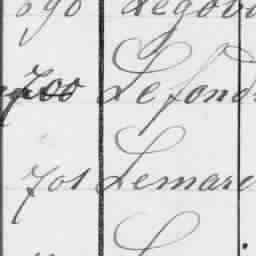 690 Legov
700 Lefond
701 Lemare